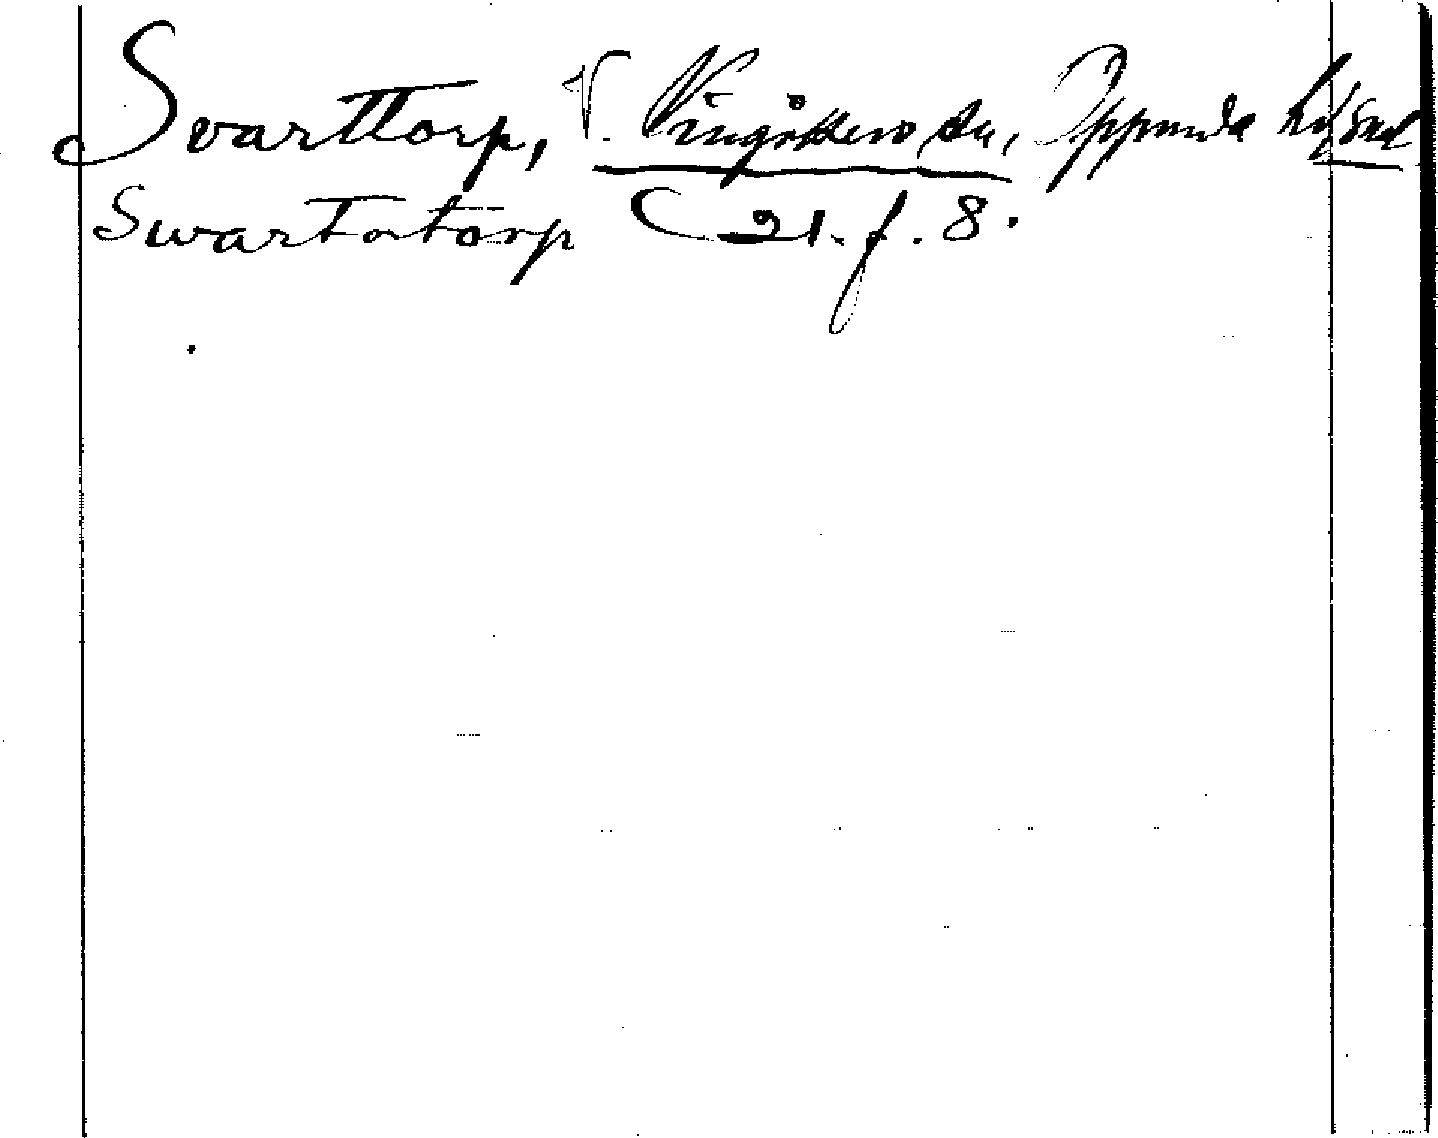 Svarttorp, V. Vingåkers sn, Oppunda hd, Srml
Swartatorp C 21. f. 8.